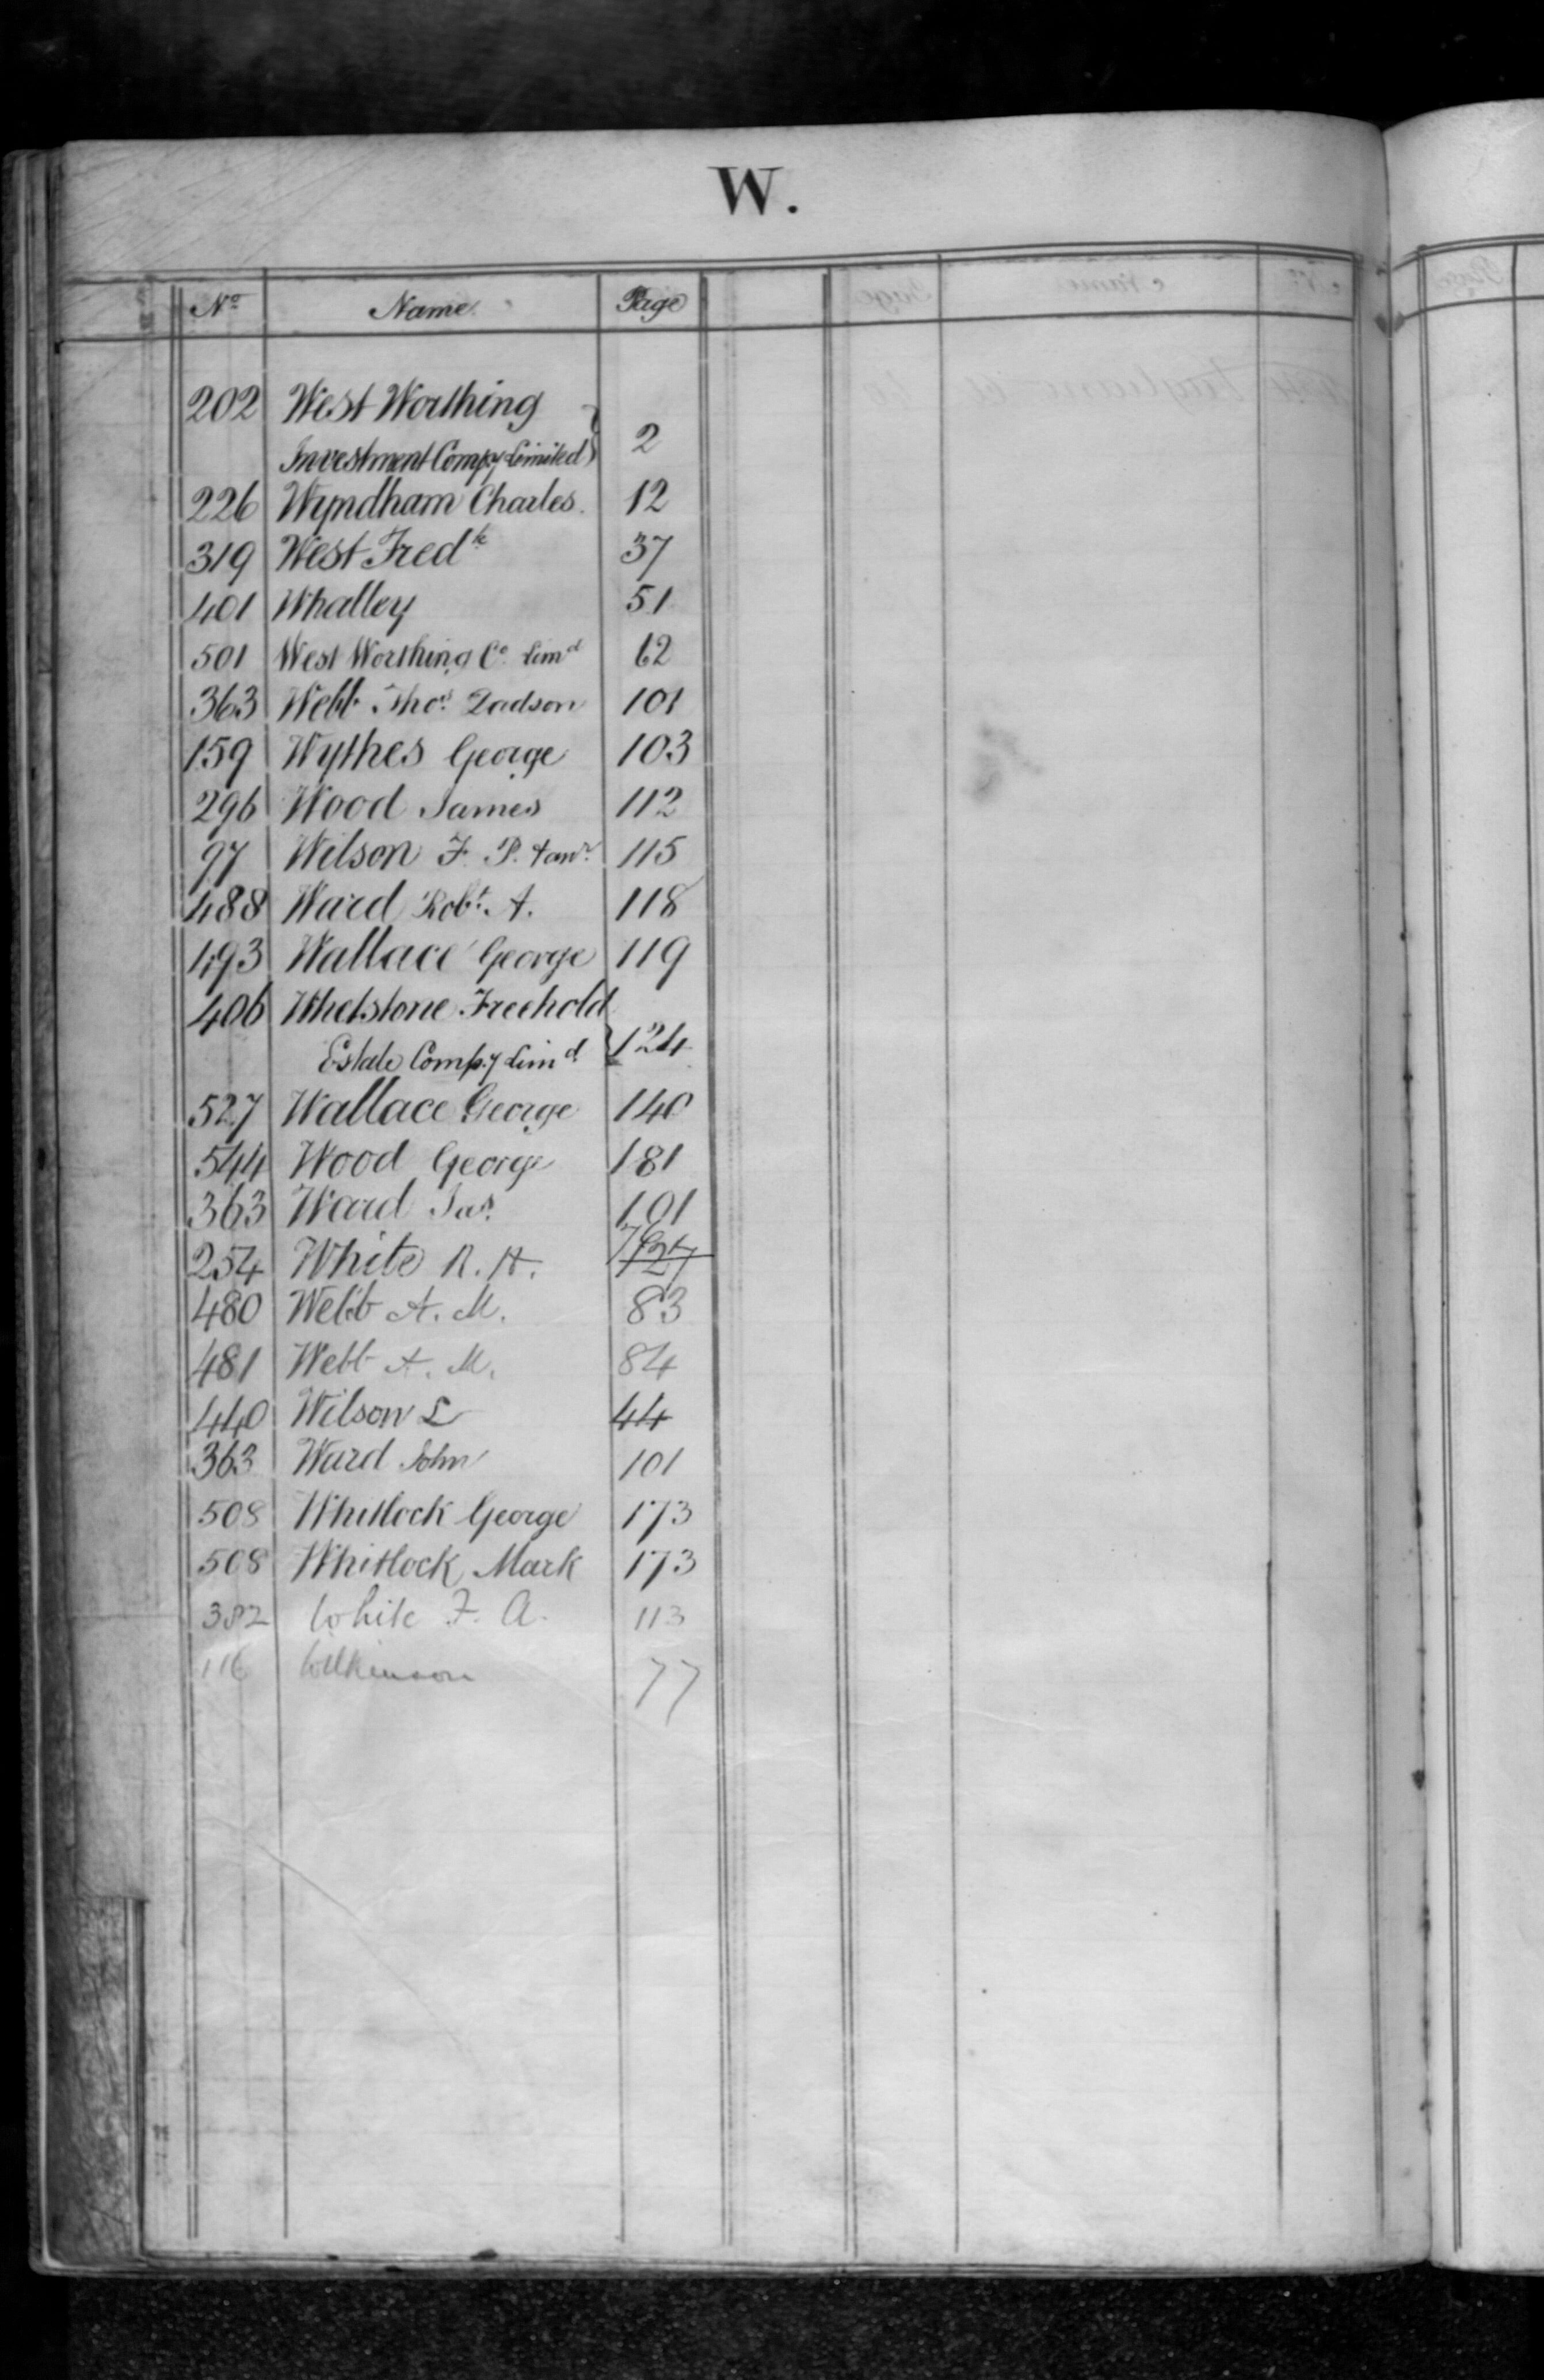 W.
No Name Page
202 West Worthing
Investment Compy Limited 2
226 Wyndham Charles. 12
319 West Fredk 37
401 Whalley 51
501 West Worthing Co Limd 62
363 Webb Thos. Dadson 101
159 Wythes George 103
296 Wood James 112
97 Wilson F. P. 115
488 Ward Robt. A. 118
493 Wallace George 119
406 Whetstone Freehold
Estate Compy Limd 124
527 Wallace George 140
544 Wood George 181
363 Ward Jas. 101
254 White R. H.
480 Webb A. M. 83
481 Webb A. M. 84
440 Wilson L 44
363 Ward John 101
508 Whitlock George 173
508 Whitlock Mark 173
382 White F. A. 113
116 Wilkinson 77